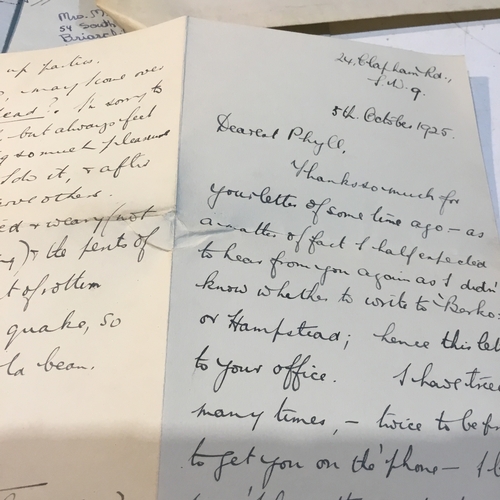 Mrs. M
54 South
Briarcl
up parties.
may come over
Head? I'm sorry to
but always feel
so much pleasure
do it, & after
others.
& weary (not
& the pents of
t of rotten
quake, so
la bean.
24, Clapham Rd.,
S.W.9.
5th. October 1925.
Dearest Phyll,
Thanks so much for
your letter of some time ago – as
a matter of fact I half expected
to hear from you again as I didn't
know whether to write to "Berko:
or Hampstead; hence this let
to your office. I have tried
many times, – twice to be fr
to get you on the 'phone – I b